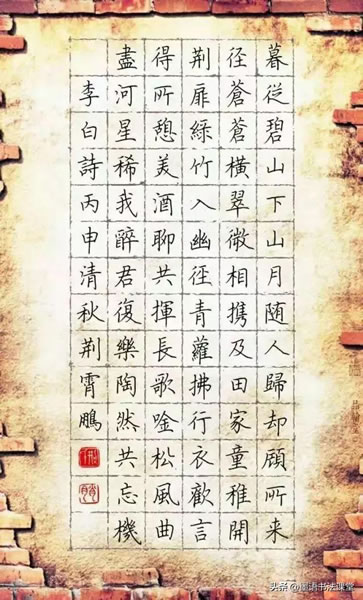 暮從碧山下山月随人歸却顧所来
径蒼蒼橫翠微相携及田家童稚開
荆扉綠竹入幽徑青蘿拂行衣歡言
得所憩美酒聊共揮長歌唫松風曲
盡河星稀我醉君復樂陶然共忘機
李白詩丙申清秋荆霄鵬